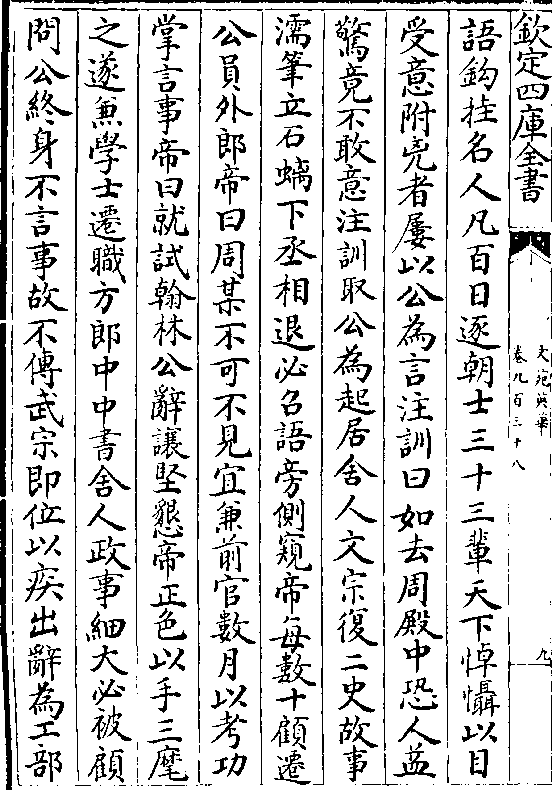 欽定四庫全書
文苑英華
卷九百三十八
九
語鈎挂名人凡百日逐朝士三十三輩天下悼懾以目
受意附兇者屢以公為言注訓曰如去周殿中恐人益
驚竟不敢意注訓取公為起居舍人文宗復二史故事
濡筆立石螭下丞相退必召語旁側窺帝每數十顧遷
公員外郎帝曰周某不可不見宜兼前官數月以考功
掌言事帝曰就試翰林公辭讓堅懇帝正色以手三麾
之遂兼學士遷職方郎中中書舍人政事細大必被顧
問公終身不言事故不傳武宗即位以疾出辭為工部